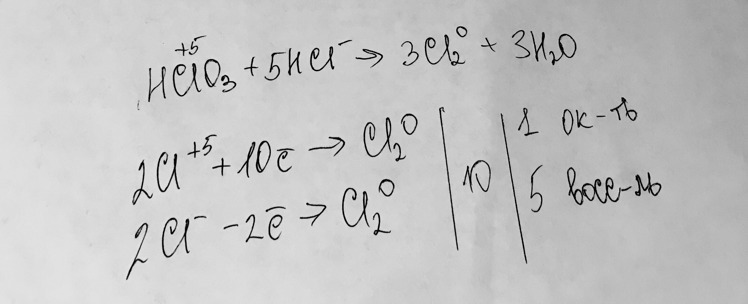 HCl⁺⁵O₃ + 5HCl⁻ → 3Cl₂⁰ + 3H₂O
2Cl⁺⁵ + 10ē → Cl₂⁰ | 10 | 1 ок-ть
2Cl⁻ - 2ē → Cl₂⁰ | | 5 восс-ль